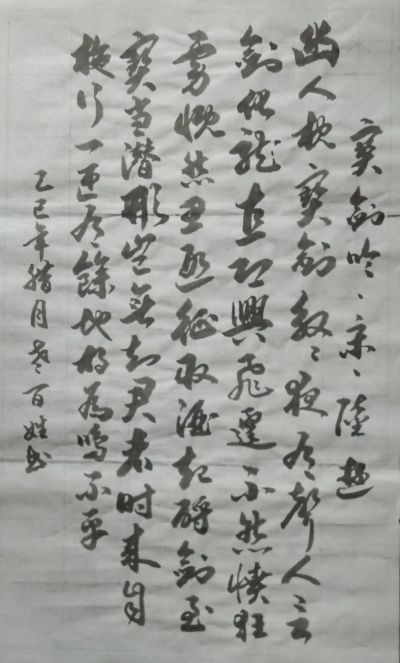 寶劍吟、宋、陸遊
幽人枕寶劍殷殷夜有聲人言
劍化龍直恐興飛霆不然憤狂
虜慨然思遐征取酒起酹劍至
寶當潛形豈无知君者时来自
施行一匣有餘地胡為鳴不平
乙巳年腊月老百姓书